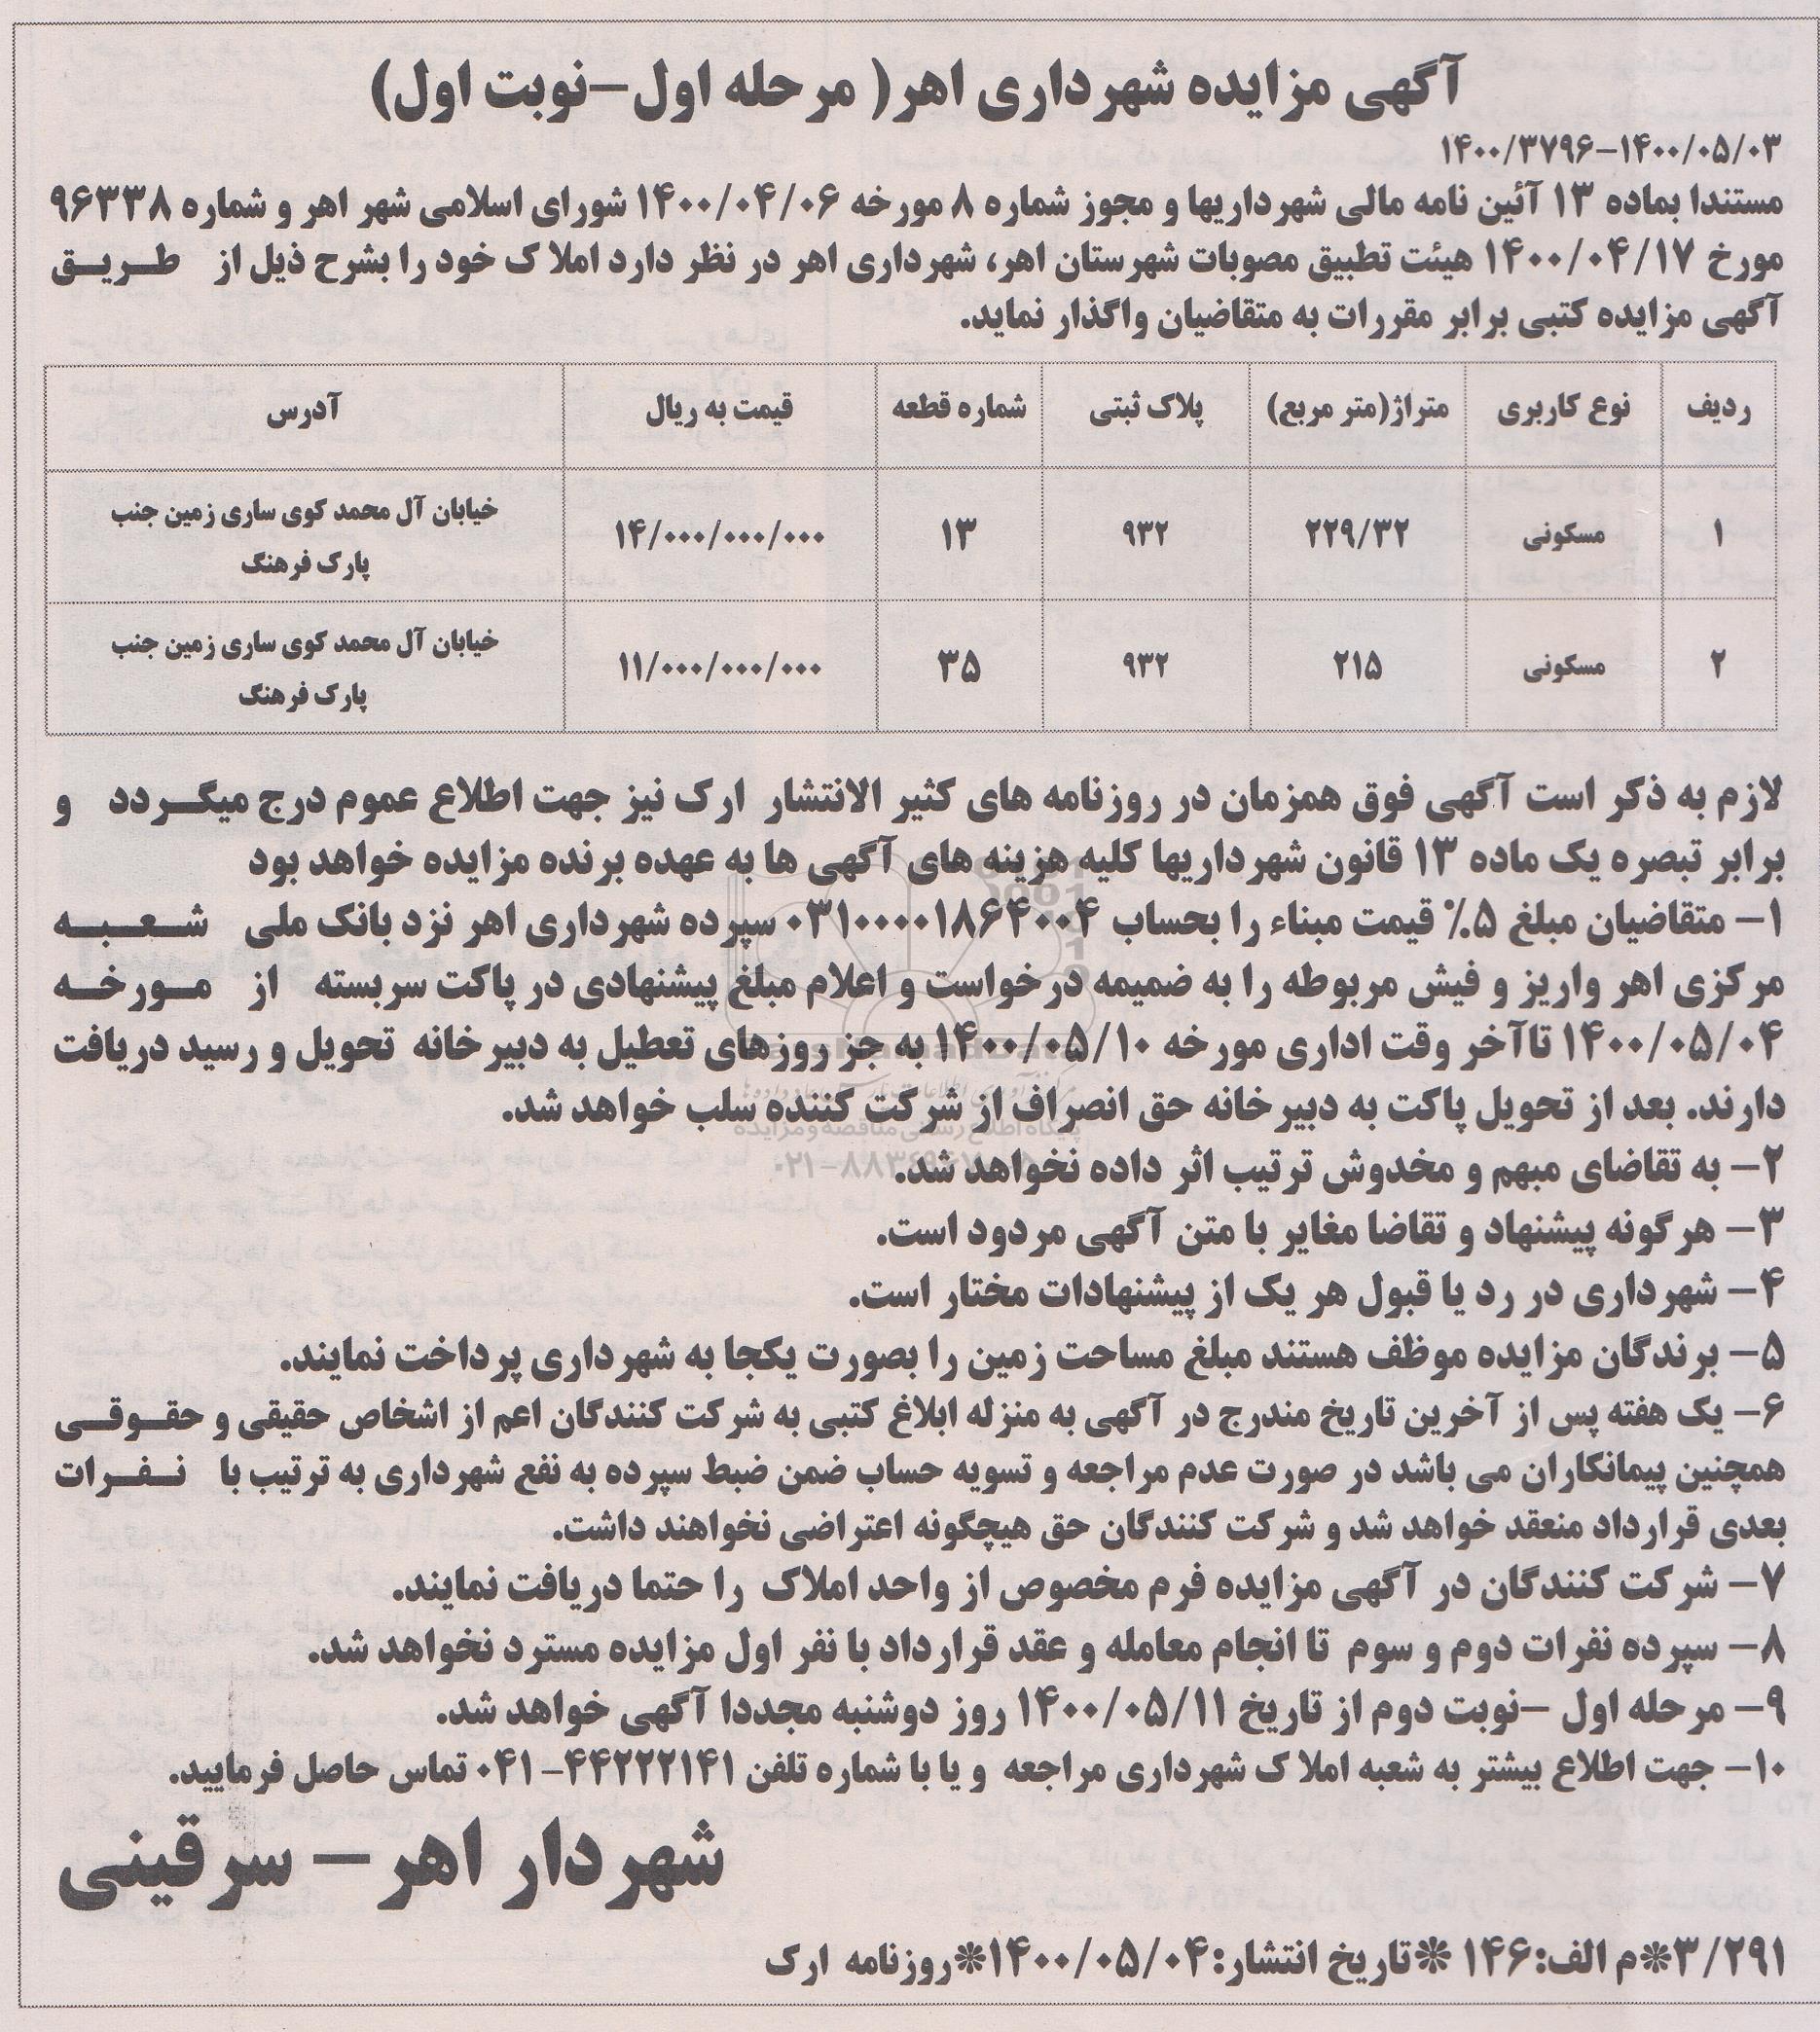 آگهی مزایده شهرداری اهر( مرحله اول-نوبت اول)
۱۴۰۰/۳۷۹۶-۱۴۰۰/۰۵/۰۳
مستندا بماده ۱۳ آئین نامه مالی شهرداریها و مجوز شماره ۸ مورخه ۱۴۰۰/۰۴/۰۶ شورای اسلامی شهر اهر و شماره ۹۶۳۳۸
مورخ ۱۴۰۰/۰۴/۱۷ هیئت تطبیق مصوبات شهرستان اهر، شهرداری اهر در نظر دارد املاک خود را بشرح ذیل از طریق
آگهی مزایده کتبی برابر مقررات به متقاضیان واگذار نماید.
ردیف نوع کاربری متراژ(متر مربع) پلاک ثبتی شماره قطعه قیمت به ریال آدرس
۱ مسکونی ۲۲۹/۳۲ ۹۳۲ ۱۳ ۱۴/۰۰۰/۰۰۰/۰۰۰ خیابان آل محمد کوی ساری زمین جنب
پارک فرهنگ
۲ مسکونی ۲۱۵ ۹۳۲ ۳۵ ۱۱/۰۰۰/۰۰۰/۰۰۰ خیابان آل محمد کوی ساری زمین جنب
پارک فرهنگ
لازم به ذکر است آگهی فوق همزمان در روزنامه های کثیر الانتشار ارک نیز جهت اطلاع عموم درج میگردد و
برابر تبصره یک ماده ۱۳ قانون شهرداریها کلیه هزینه های آگهی ها به عهده برنده مزایده خواهد بود
۱- متقاضیان مبلغ ۵% قیمت مبناء را بحساب ۰۳۱۰۰۰۰۱۸۶۴۰۰۴ سپرده شهرداری اهر نزد بانک ملی شعبه
مرکزی اهر واریز و فیش مربوطه را به ضمیمه درخواست و اعلام مبلغ پیشنهادی در پاکت سربسته از مورخه
۱۴۰۰/۰۵/۰۴ تاآخر وقت اداری مورخه ۱۴۰۰/۰۵/۱۰ به جز روزهای تعطیل به دبیرخانه تحویل و رسید دریافت
دارند. بعد از تحویل پاکت به دبیرخانه حق انصراف از شرکت کننده سلب خواهد شد.
۲- به تقاضای مبهم و مخدوش ترتیب اثر داده نخواهد شد.
۳- هرگونه پیشنهاد و تقاضا مغایر با متن آگهی مردود است.
۴- شهرداری در رد یا قبول هر یک از پیشنهادات مختار است.
۵- برندگان مزایده موظف هستند مبلغ مساحت زمین را بصورت یکجا به شهرداری پرداخت نمایند.
۶- یک هفته پس از آخرین تاریخ مندرج در آگهی به منزله ابلاغ کتبی به شرکت کنندگان اعم از اشخاص حقیقی و حقوقی
همچنین پیمانکاران می باشد در صورت عدم مراجعه و تسویه حساب ضمن ضبط سپرده به نفع شهرداری به ترتیب با نفرات
بعدی قرارداد منعقد خواهد شد و شرکت کنندگان حق هیچگونه اعتراضی نخواهند داشت.
۷- شرکت کنندگان در آگهی مزایده فرم مخصوص از واحد املاک را حتما دریافت نمایند.
۸- سپرده نفرات دوم و سوم تا انجام معامله و عقد قرارداد با نفر اول مزایده مسترد نخواهد شد.
۹- مرحله اول -نوبت دوم از تاریخ ۱۴۰۰/۰۵/۱۱ روز دوشنبه مجددا آگهی خواهد شد.
۱۰- جهت اطلاع بیشتر به شعبه املاک شهرداری مراجعه و یا با شماره تلفن ۴۴۲۲۲۱۴۱-۰۴۱ تماس حاصل فرمایید.
شهردار اهر - سرقینی
۳/۲۹۱*م الف:۱۴۶ *تاریخ انتشار:۱۴۰۰/۰۵/۰۴*روزنامه ارک